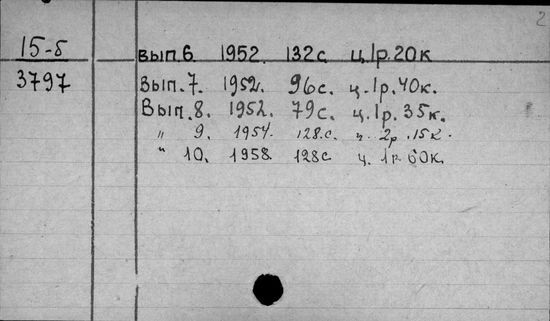 2
15-б вып.6 1952. 132с. ц.1р.20к
3797 Вып.7. 1952. 96с. ц.1р.40к.
Вып.8. 1952. 79с. ц.1р.35к.
" 9. 1954. 128.с. ц. 2р.15к.
" 10. 1958. 128с ц. 1р.60к.